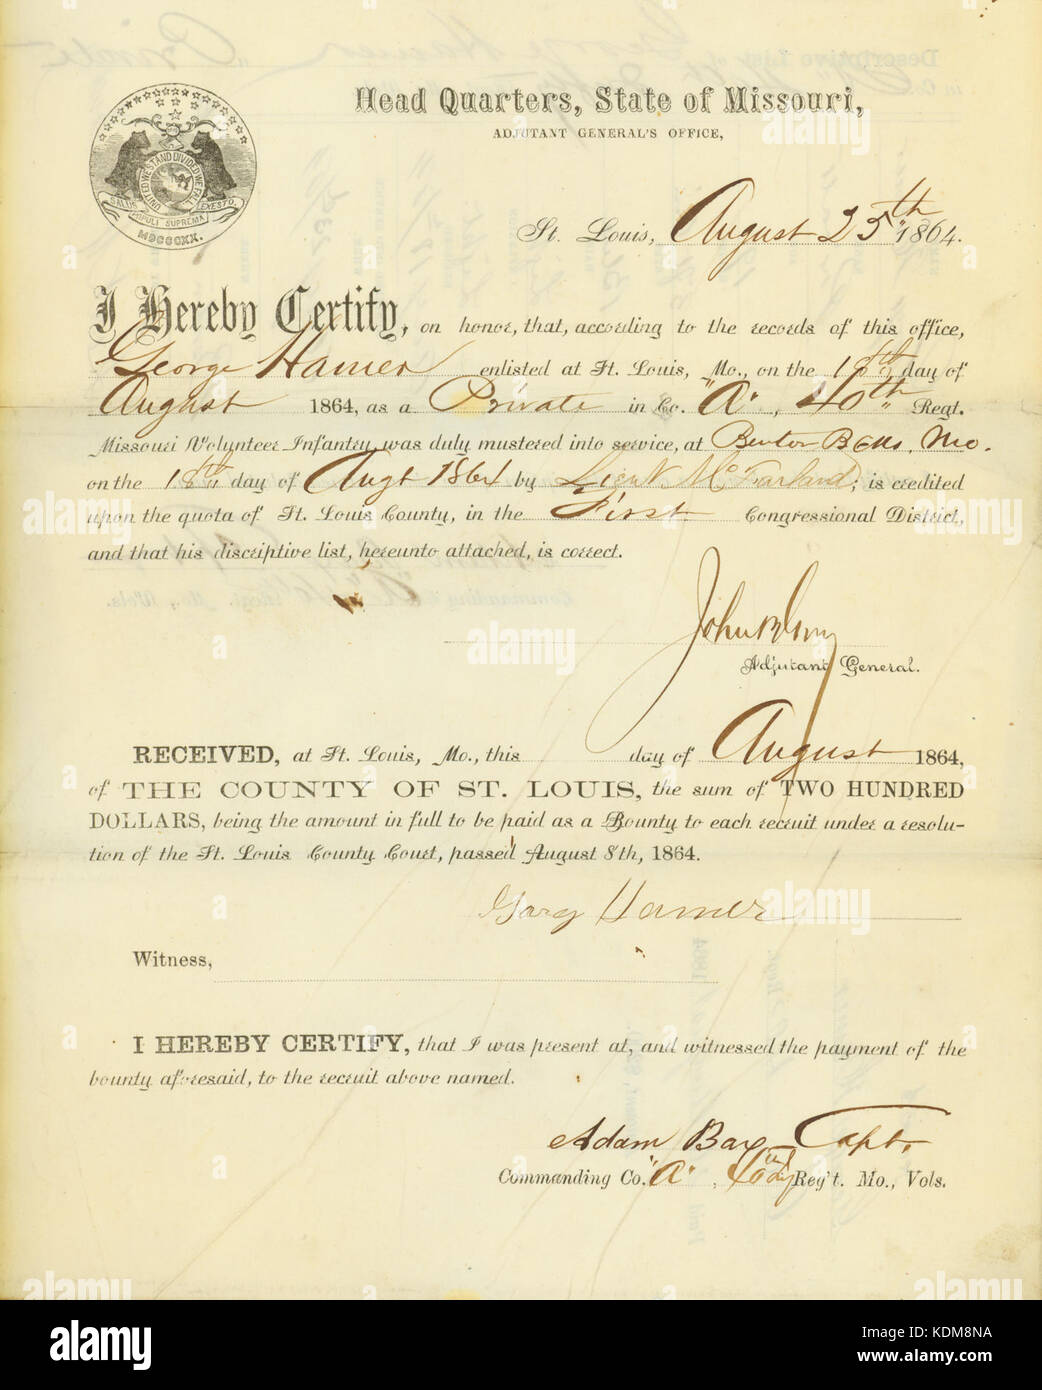 Head Quarters, State of Missouri,
ADJUTANT GENERAL'S OFFICE,
UNITED WE STAND DIVIDED WE FALL
SALUS POPULI SUPREMA EXESTO.
MDCCCXX.
St. Louis, August 25th 1864.
I Hereby Certify, on honor, that, according to the records of this office,
George Hamer enlisted at St. Louis, Mo., on the day of
August 1864, as a Private in Co. "A", 40th Regt.
Missouri Volunteer Infantry, was duly mustered into service, at Benton Bks. Mo.
on the 18th day of Augt 1864 by Lieut. McFarland; is credited
upon the quota of St. Louis County, in the First Congressional District,
and that his descriptive list, hereunto attached, is correct.
John B Gray
Adjutant General.
RECEIVED, at St. Louis, Mo., this day of August 1864,
of THE COUNTY OF ST. LOUIS, the sum of TWO HUNDRED
DOLLARS, being the amount in full to be paid as a Bounty to each recruit under a resolu-
tion of the St. Louis County Court, passed August 8th, 1864.
Hamer
Witness,
I HEREBY CERTIFY, that I was present at, and witnessed the payment of the
bounty aforesaid, to the recruit above named.
Adam Bax Capt.
Commanding Co. "A", 40 Reg't. Mo., Vols.
alamy
Image ID: KDM8NA
www.alamy.com